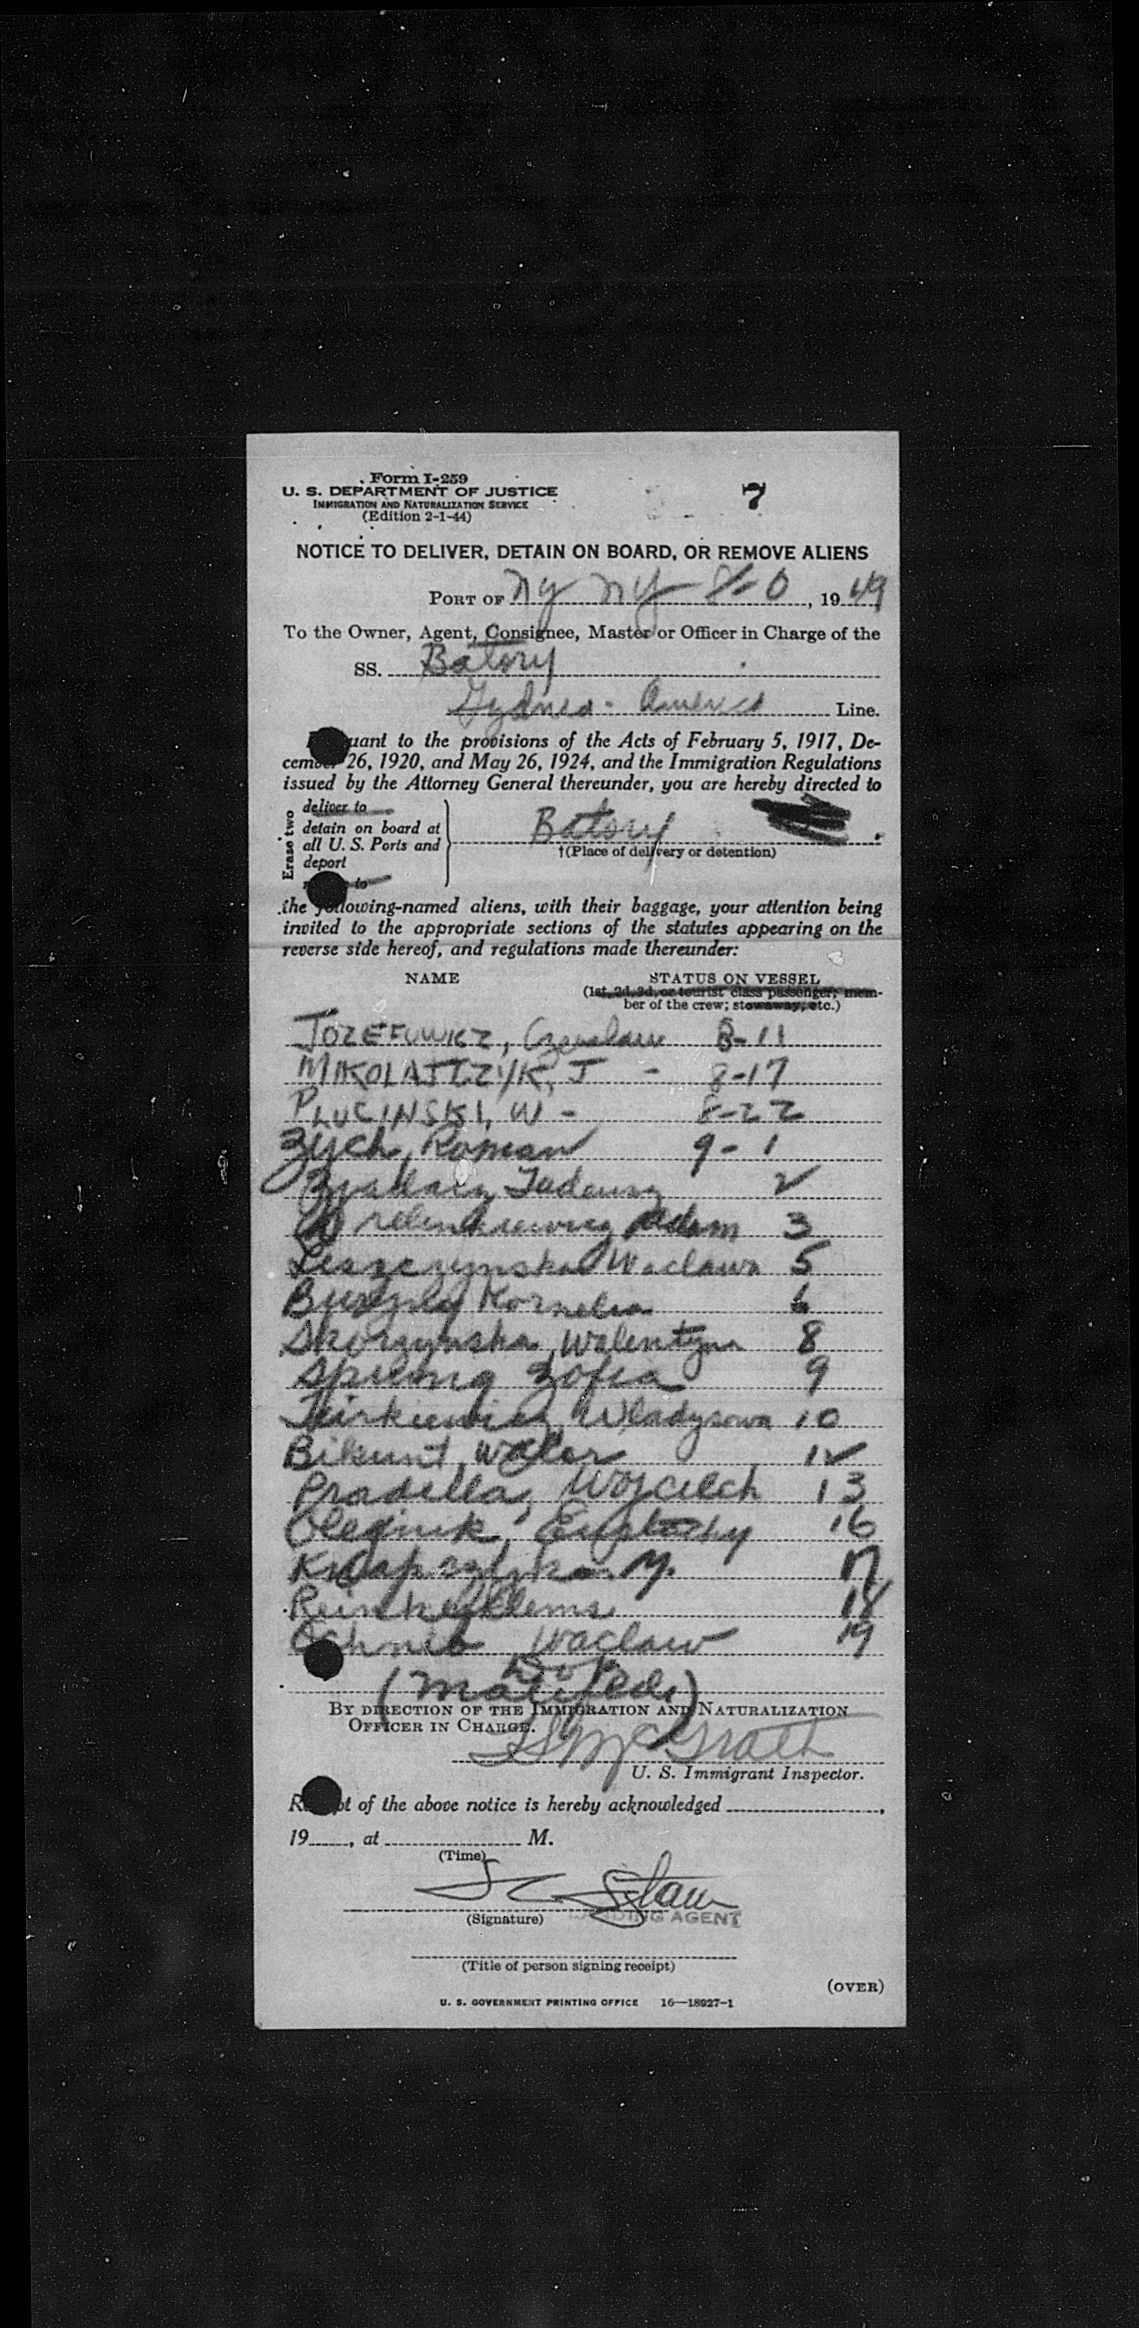 Form I-259
U. S. DEPARTMENT OF JUSTICE
IMMIGRATION AND NATURALIZATION SERVICE
(Edition 2-1-44)
7
NOTICE TO DELIVER, DETAIN ON BOARD, OR REMOVE ALIENS
PORT OF NY NY 8-0, 1949
To the Owner, Agent, Consignee, Master or Officer in Charge of the
SS. Batory
Gydnia - America Line.
uant to the provisions of the Acts of February 5, 1917, De-
cem 26, 1920, and May 26, 1924, and the Immigration Regulations
issued by the Attorney General thereunder, you are hereby directed to
Erase two
deliver to
detain on board at
all U. S. Ports and
deport
to
Batory
†(Place of delivery or detention)
the following-named aliens, with their baggage, your attention being
invited to the appropriate sections of the statutes appearing on the
reverse side hereof, and regulations made thereunder:
NAME STATUS ON VESSEL
(1st, 2d, 3d, or tourist class passenger; mem-
ber of the crew; stowaway, etc.)
JOZEFOWICZ, Czeslaw 8-11
MIKOLAJTZYK, J - 8-17
PLUCINSKI, W - 8-22
Zych, Roman 9-1
Tadeusz 2
Adam 3
Leszczynska Waclawa 5
Kornelia 6
Skorzynska, Walentyna 8
Zofia 9
10
Bikunt, 12
Pradella, Wojciech 13
Olejnik, Eustachy 16
M. 17
18
Waclaw 19
BY DIRECTION OF THE IMMIGRATION AND NATURALIZATION
OFFICER IN CHARGE.
McGrath
U. S. Immigrant Inspector.
R pt of the above notice is hereby acknowledged ,
19 , at M.
(Time)
(Signature) LANDING AGENT
(Title of person signing receipt)
(OVER)
U. S. GOVERNMENT PRINTING OFFICE 16—18927-1